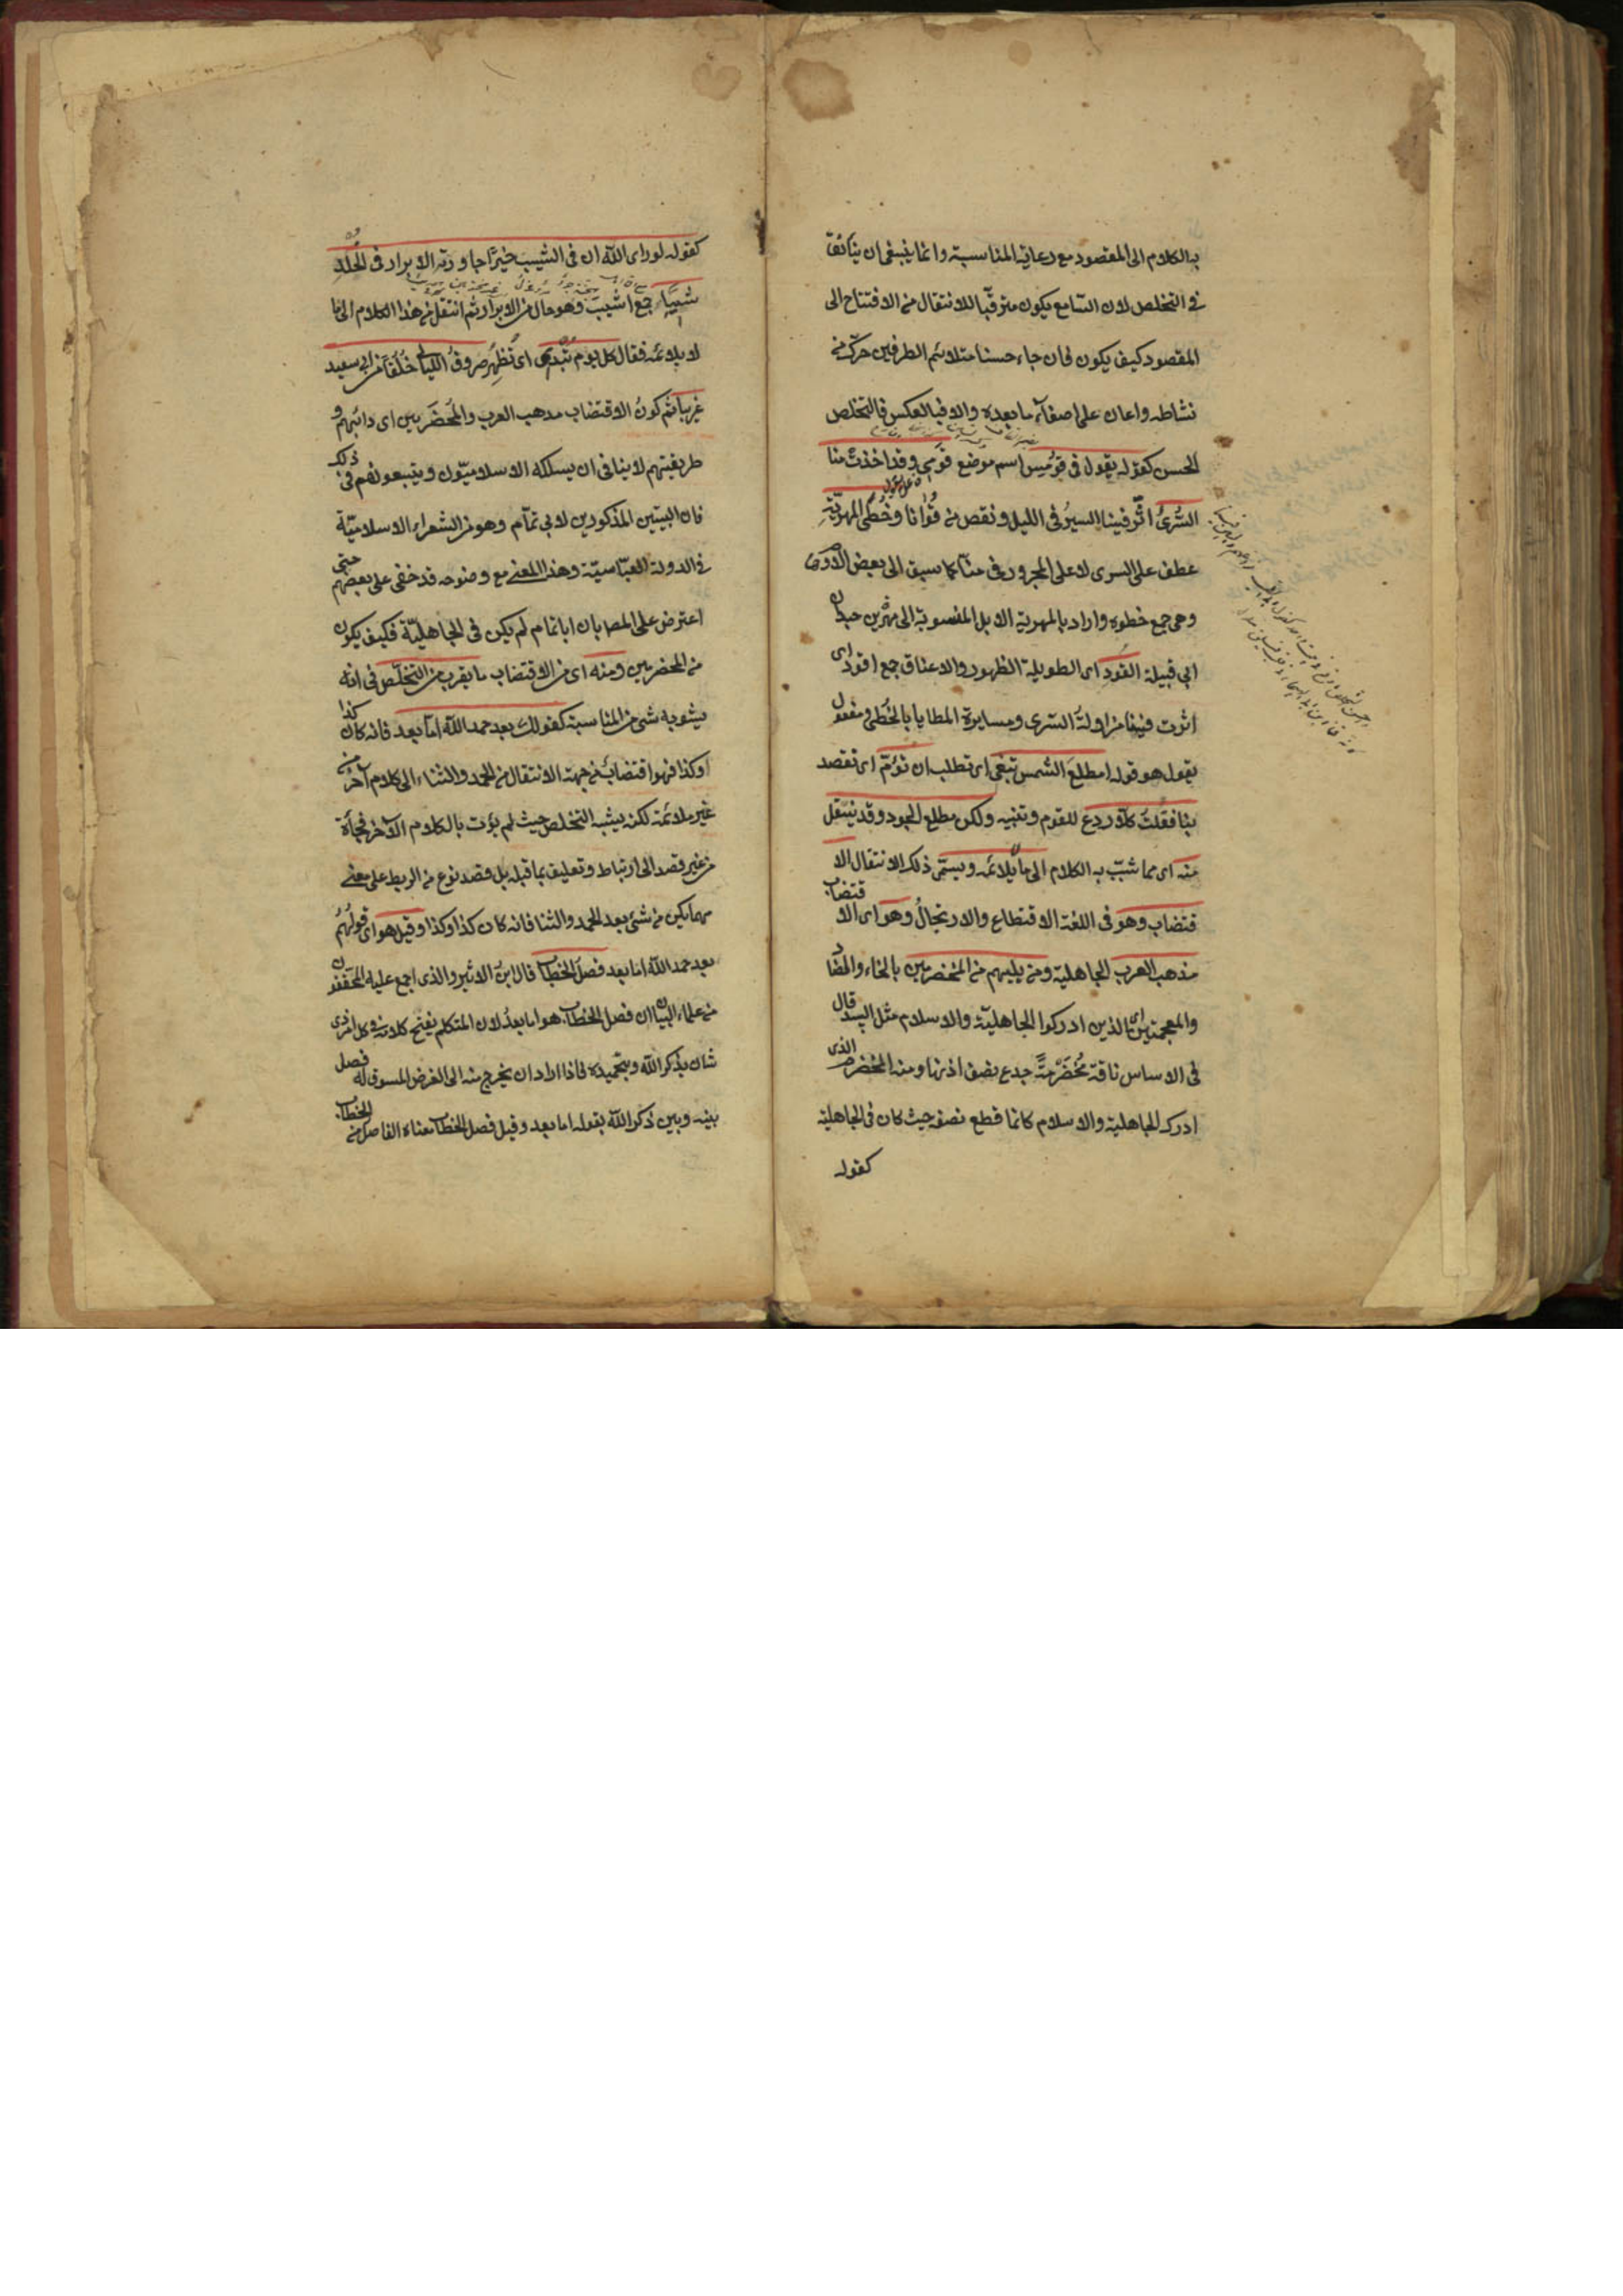 به الكلام الى المقصود مع رعاية المناسبة وانما ينبغى ان يتأنق
فى التخلص لان السّامع يكون مترقبا للانتقال من الافتتاح الى
المقصود كيف يكون فان جاء حسنا متلائم الطرفين حرّك من
نشاطه واعان على اصغآء ما بعده والا فبالعكس فالتخلص
الحسن كقوله يقول فى قومس اسم موضع قومى وقد اخذت منا
السُّرى اثّر فينا السير فى الليل ونقص من قُوانا وخُطى المهريّة
عطف على السرى لا على المجرور فى منّا كما سبق الى بعض الاوهام
وهى جمع خطوه واراد بالمهرية الابل المنسوبة الى مهرة بن حيدان
ابى قبيلة القود اى الطويلة الظهور والاعناق جمع اقود اى
اثرت فينا مزاولة السّرى ومسايرة المطايا بالخُطى ومفعول
يقول هو قوله امطلع الشمس تبغى اى تطلب ان تؤمّ اى تقصد
بنا فقلت كلاّ ردع للقوم وتنبيه ولكن مطلع الجود وقد ينتقل
منه اى مما شبّب به الكلام الى ما لا يلائمه ويسمّى ذلك الانتقال الا
قتضاب
قتضاب وهو فى اللغة الاقتطاع والارتجال وهو اى الا
مذهب العرب الجاهلية ومن يليهم من المخضرمين بالخاء والضاد
والمعجمتين اى الذين ادركوا الجاهليّة والاسلام مثل لبيد قال
فى الاساس ناقة مُخَضْرَمَةٌ جدع نصف اذنها ومنه المخضرم الذى
ادرك الجاهلية والاسلام كانما قطع نصفه حيث كان فى الجاهلية
كقوله
كقوله لو راى الله ان فى الشيب خيرًا جاورته الابرار فى الخُلد
شيبًا جمع اشيب وهو حال من الابرار ثم انتقل من هذا الكلام الى ما
لا يلائمه فقال كل يوم تُبدى اى تُظهِر صروفُ الليالى خُلُقًا من ابى سعيد
غريبا ثم كونُ الاقتضاب مذهب العرب والمُخضرَمين اى دأبهم و
طريقتهم لا ينافى ان يسلكه الاسلاميّون ويتبعونهم فى ذلك
فان البيتين المذكورين لابى تمّام وهو من الشعراء الاسلاميّة
فى الدولة العبّاسيّة وهذا المعنى مع وضوحه قد خفى على بعضهم حتى
اعترض على المص بان ابا تمام لم يكن فى الجاهليّة فكيف يكون
من المخضرمين ومنه اى من الاقتضاب ما يقرب من التخلّص فى انه
يشوبه شئ من المناسبة كقولك بعد حمد الله امّا بعد فانه كان كذا
وكذا فهو اقتضابٌ من جهة الانتقال من الحمد والثناء الى كلام آخر من
غير ملائمة لكنه يشبه التخلص حيث لم يؤت بالكلام الآخر فجأة
من غير قصد الى ارتباط وتعليق بما قبله بل قصد نوع من الربط على معنى
مهما يكن من شئ بعد الحمد والثنا فانه كان كذا وكذا وقيل هو اى قولُهُم
بعد حمد الله اما بعد فصل الخطاب قال ابن الاثير والذى اجمع عليه المحققون
من علماء البيان ان فصل الخطاب هو اما بعدُ لان المتكلم يفتح كلامه فى كل امر ذى
شان بذكر الله وتحميده فاذا اراد ان يخرج منه الى الغرض المسوق له فصل
بينه وبين ذكر الله بقوله اما بعد وقيل فصل الخطاب معناه الفاصل من الخطاب